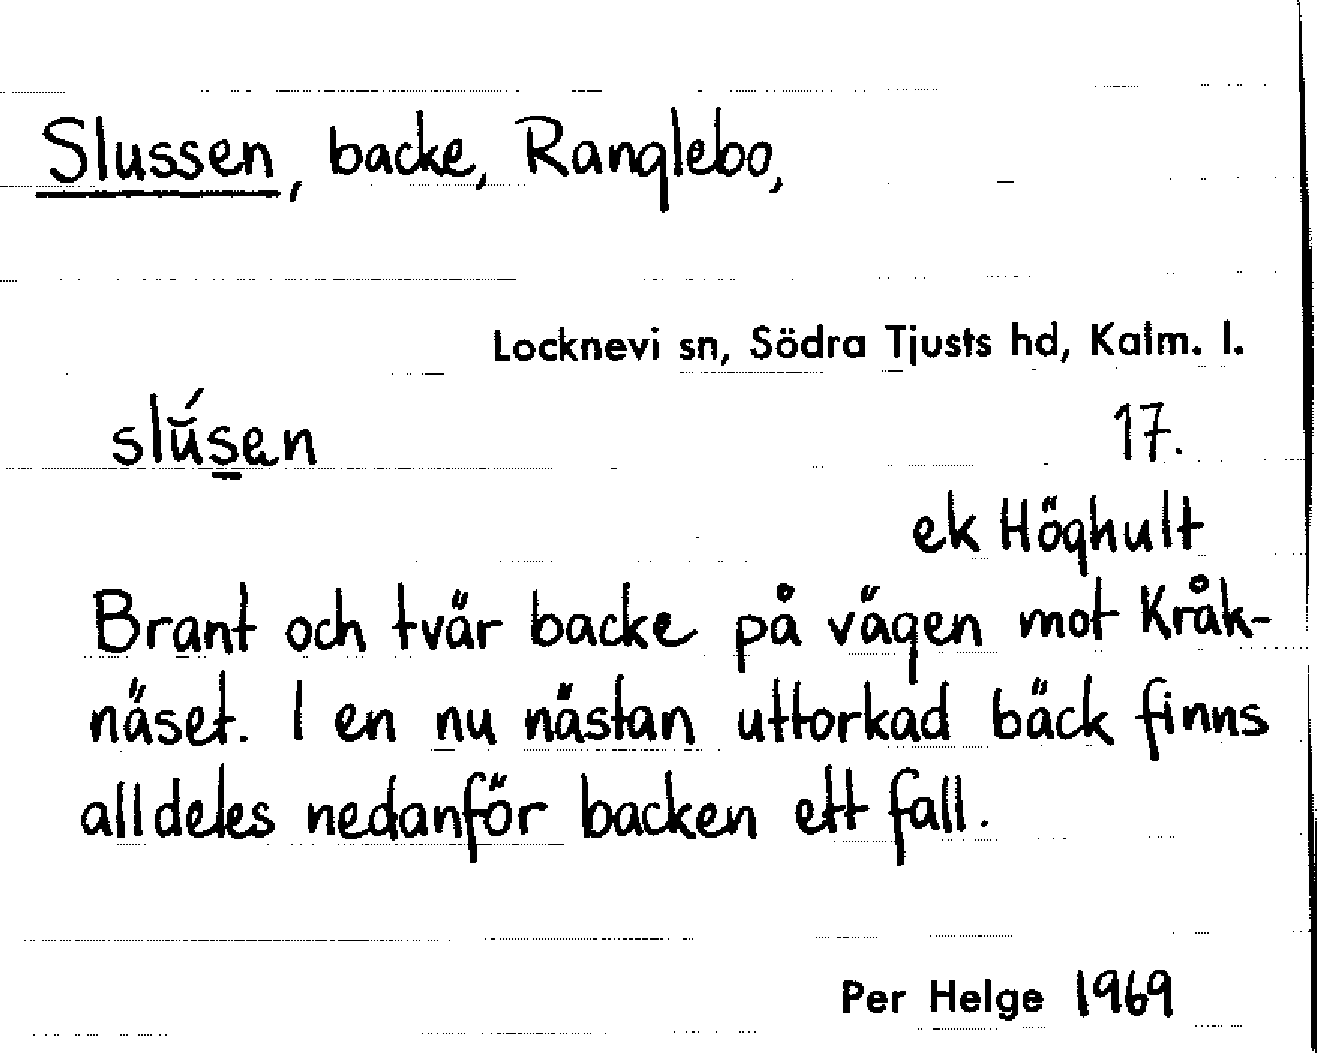 Slussen, backe, Ranglebo,
Locknevi sn, Södra Tjusts hd, Kalm. l.
slǘsen
17.
ek Höghult
Brant och tvär backe på vägen mot Kråk-
näset. I en nu nästan uttorkad bäck finns
alldeles nedanför backen ett fall.
Per Helge 1969